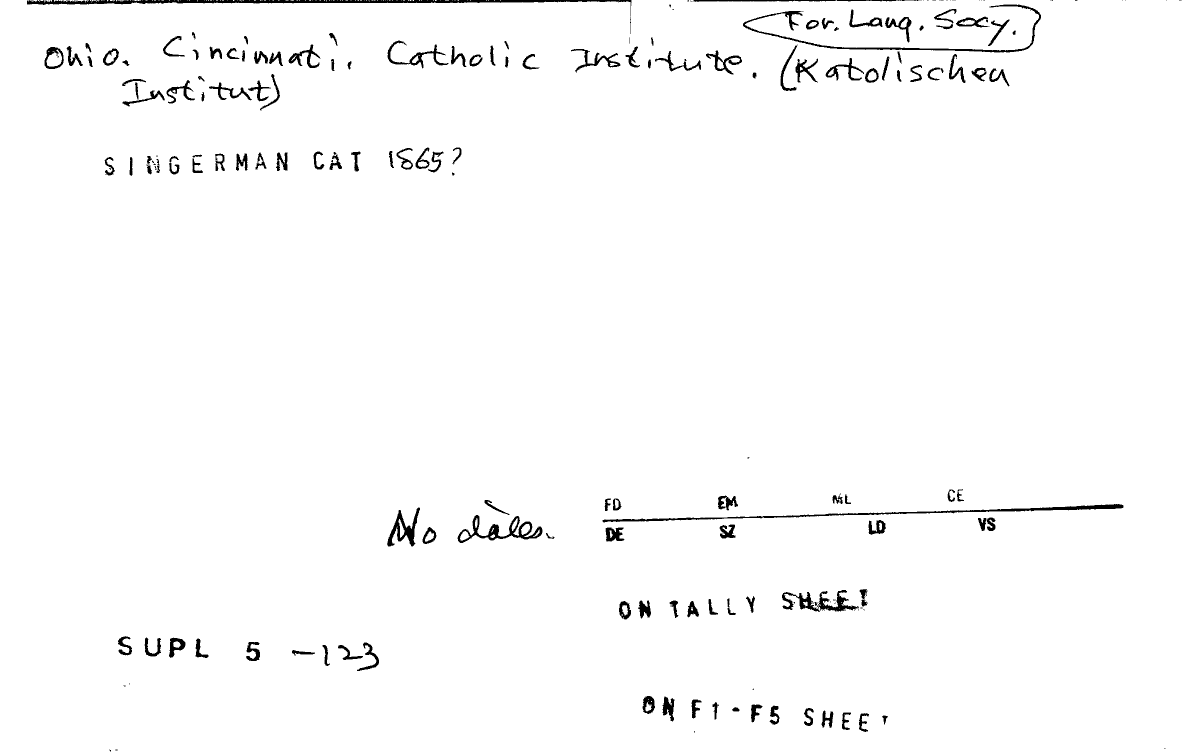 For. Lang. Socy.
Ohio. Cincinnati. Catholic Institute. (Katolischen
Institut)
SINGERMAN CAT 1865?
FD EM ML CE
No dates.
DE SZ LD VS
ON TALLY SHEET
SUPL 5 -123
ON F1-F5 SHEET